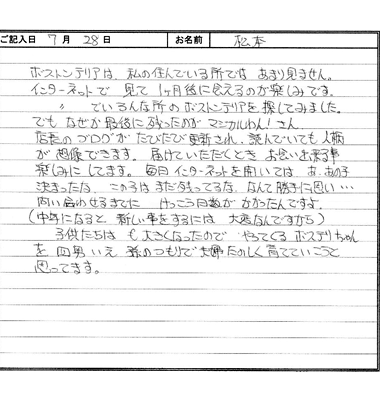 ご記入日 7 月 28 日 お名前 松本
ボストンテリアは、私の住んでいる所では あまり見ません。
インターネットで 見て 1ヶ月後に会えるのが楽しみです。
〃 でいろんな所のボストンテリアを探してみました。
でも なぜか最後に残ったのが マジカルわん!さん。
店長のブログが たびたび更新され、読んでいても人柄
が想像できます。届けていただくとき お会い出来る事
楽しみにしてます。毎日インターネットを開いては、あ、あの子
決まったな、この子は まだ残ってるな、なんて勝手に思い…
問い合わせるまでに けっこう日数が かかったんですよ。
(中年になると、新しい事をするには 大変なんですから)
子供たちは も 大きくなったので やってくる ボステリちゃん
を 四男いえ 孫のつもりで 夫婦 たのしく育てていこうと
思ってます。